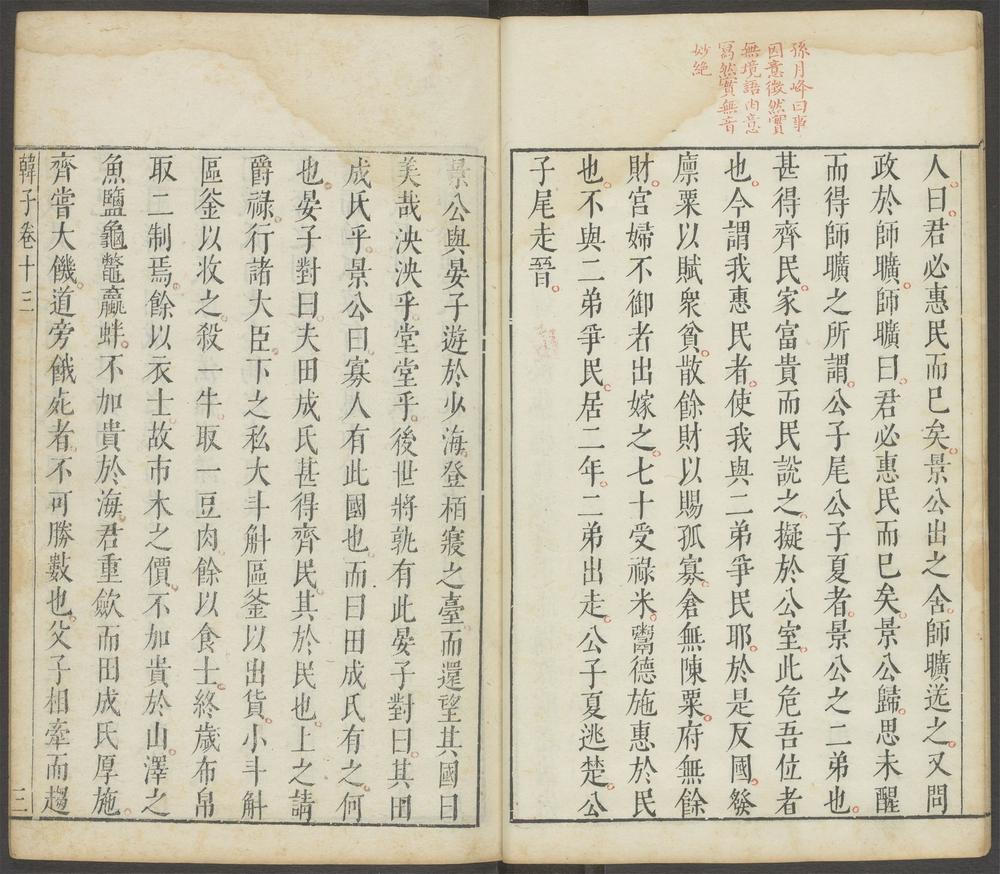 孫月峰曰事
因意微然實
無境語由意
寫然實無音
妙絶
人曰君必惠民而巳矣景公出之舍師曠送之又問
政於師曠師曠曰君必惠民而巳矣景公歸思未醒
而得師曠之所謂公子尾公子夏者景公之二弟也
甚得齊民家富貴而民說之擬於公室此危吾位者
也今謂我惠民者使我與二弟爭民耶於是反國發
廪粟以賦衆貧散餘財以賜孤寡倉無陳粟府無餘
財宮婦不御者出嫁之七十受祿米鬻德施惠於民
也不與二弟爭民居二年二弟出走公子夏逃楚公
子尾走晉
景公與晏子遊於少海登栢寝之臺而還望其國曰
美哉泱泱乎堂堂乎後世將孰有此晏子對曰其田
成氏乎景公曰寡人有此國也而曰田成氏有之何
也晏子對曰夫田成氏甚得齊民其於民也上之請
爵祿行諸大臣下之私大斗斛區釜以出貨小斗斛
區釜以收之殺一牛取一豆肉餘以食士終歲布帛
取二制焉餘以衣士故市木之價不加貴於山澤之
魚鹽龜鼈蠃蚌不加貴於海君重斂而田成氏厚施
齊嘗大饑道旁餓死者不可勝數也父子相牽而趨
韓子卷十三
三